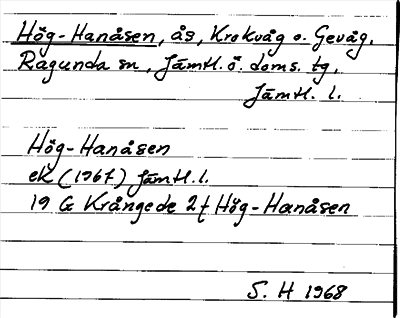 Hög-Hanåsen, ås, Krokvåg o. Gevåg,
Ragunda sn, Jämtl. ö. doms. tg,
Jämtl. l.
Hög-Hanåsen
ek (1967) Jämtl. l.
19 G Krångede 2f Hög-Hanåsen
S. H 1968